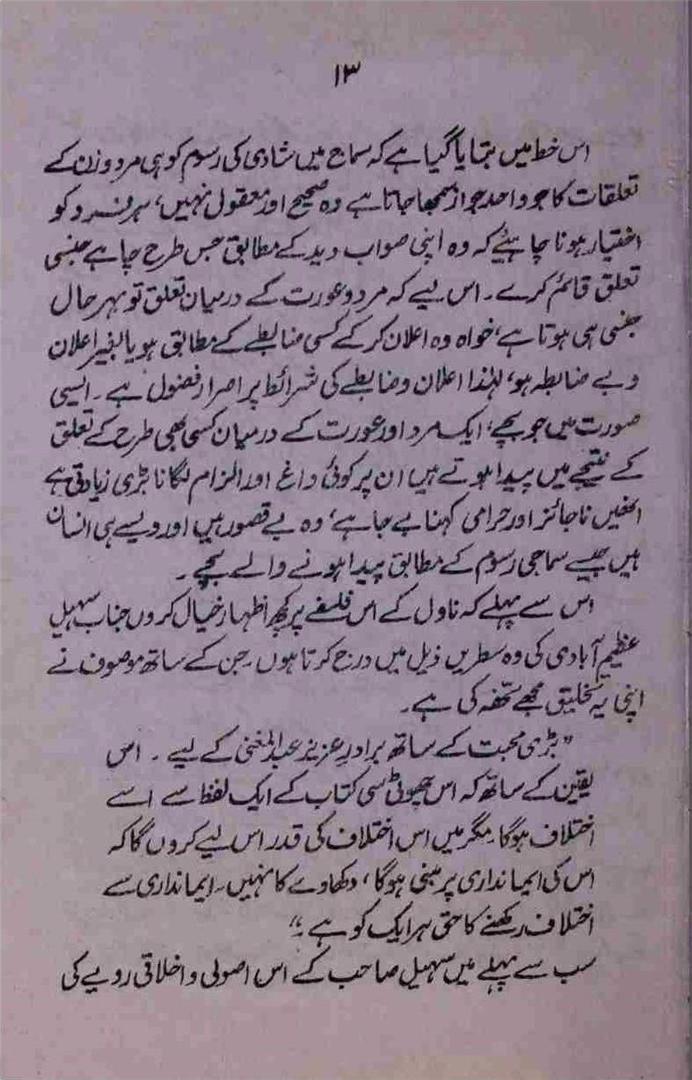 ۱۳
اس خط میں بتایا گیا ہے کہ سماج میں شادی کی رسوم کو ہی مرد و زن کے
تعلقات کا جو واحد جواز سمجھا جاتا ہے وہ صحیح اور معقول نہیں، ہر فرد کو
اختیار ہونا چاہیئے کہ وہ اپنی صواب دید کے مطابق جس طرح چاہے جنسی
تعلق قائم کرے۔ اس لیے کہ مرد و عورت کے درمیان تعلق تو بہر حال
جنسی ہی ہوتا ہے، خواہ وہ اعلان کر کے کسی ضابطے کے مطابق ہو یا بغیر اعلان
و بے ضابطہ ہو، لہٰذا اعلان و ضابطے کی شرائط پر اصرار فضول ہے۔ ایسی
صورت میں جو بچے، ایک مرد اور عورت کے درمیان کسی بھی طرح کے تعلق
کے نتیجے میں پیدا ہوتے ہیں ان پر کوئی داغ اور الزام لگانا بڑی زیادتی ہے
انھیں ناجائز اور حرامی کہنا بے جا ہے، وہ بے قصور ہیں اور ویسے ہی انسان
ہیں جیسے سماجی رسوم کے مطابق پیدا ہونے والے بچے۔
اس سے پہلے کہ ناول کے اس فلسفے پر کچھ اظہار خیال کروں جناب سہیل
عظیم آبادی کی وہ سطریں ذیل میں درج کرتا ہوں۔ جن کے ساتھ موصوف نے
اپنی یہ تخلیق مجھے تحفہ کی ہے۔
”بڑی محبت کے ساتھ برادرِ عزیز عبدالمغنی کے لیے۔ اس
یقین کے ساتھ کہ اس چھوٹی سی کتاب کے ایک لفظ سے اسے
اختلاف ہوگا۔ مگر میں اس اختلاف کی قدر اس لیے کروں گا کہ
اس کی ایمانداری پر مبنی ہوگا، دکھاوے کا نہیں۔ ایمانداری سے
اختلاف رکھنے کا حق ہر ایک کو ہے۔“
سب سے پہلے میں سہیل صاحب کے اس اصولی و اخلاقی رویے کی